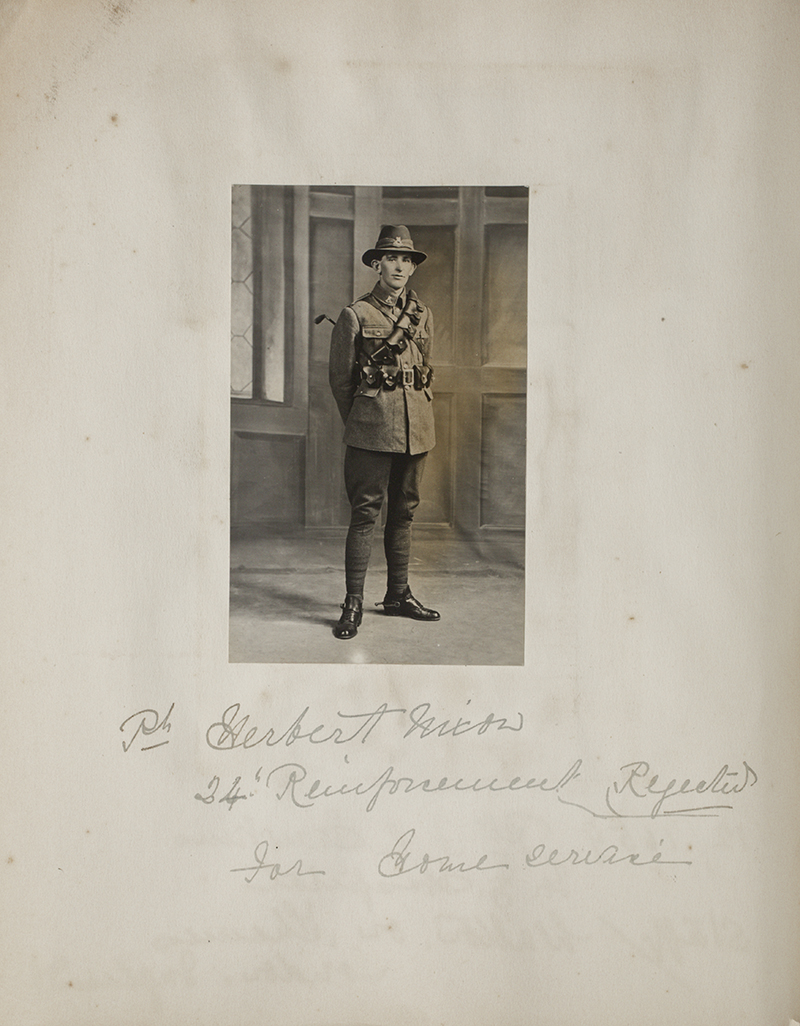 Pte Herbert Nixon
34th Reinforcement Rejected
For Home service